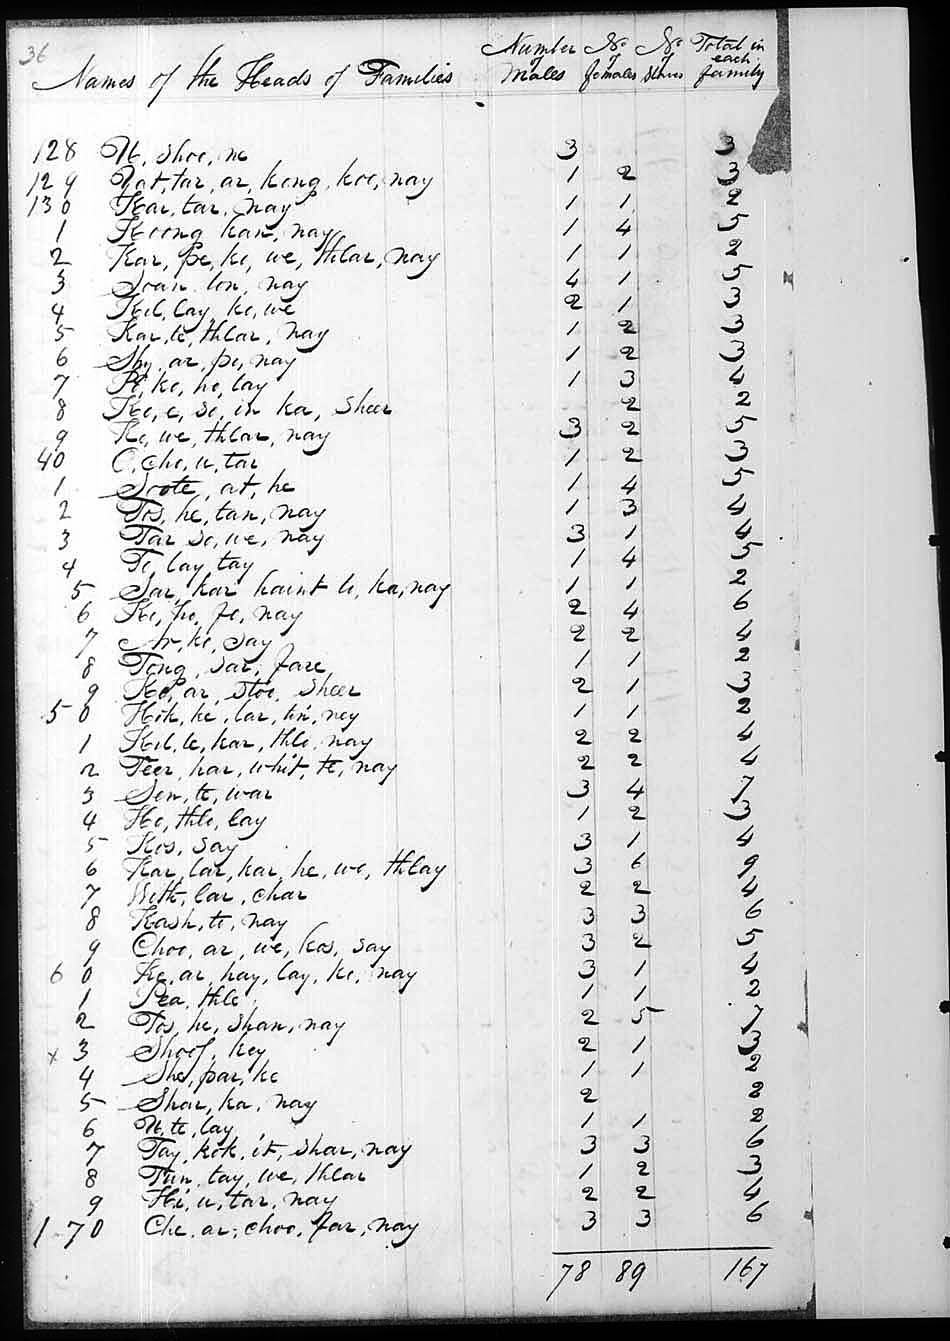 36
Names of the Heads of Families Number of Males No of females No of Slaves Total in each family
128 U, shoe, ne 3 3
129 Yat, tar, ar, kong, koe, nay 1 2 3
130 Kar, tar, nay 1 1 2
1 Koong kar, nay 1 4 5
2 Kar, pe, ke, we, thlar, nay 1 1 2
3 Soan, lon, nay 4 1 5
4 Kil, lay, ke, we 2 1 3
5 Kar, le, thlar, nay 1 2 3
6 Shy, ar, pe, nay 1 2 3
7 Pe, ke, he, lay 1 3 4
8 Ke, e, se, in ka, Sheer 2 2
9 Ke, we, thlar, nay 3 2 5
40 O, che, u, tar 1 2 3
1 Soote, at, he 1 4 5
2 Tos, he, tan, nay 1 3 4
3 Tar se, we, nay 3 1 4
4 Te, lay, tay 1 4 5
5 Sar, kar haint le, ka, nay 1 1 2
6 Ke, pe, fe, nay 2 4 6
7 Ar, ke, say 2 2 4
8 Tong, sar, fare 1 1 2
9 Ke, ar, stoe, Sheer 2 1 3
50 Hok, ke, lar, tin, ney 1 1 2
1 Kil, le, kar, thle, nay 2 2 4
2 Teer, har, whit, te, nay 2 2 4
3 Sen, te, war 3 4 7
4 He, thle, lay 1 2 3
5 Kos, say 3 1 4
6 Kar, lar, kar, he, we, thlay 3 6 9
7 With, lar, char 2 2 4
8 Kash, te, nay 3 3 6
9 Choo, ar, we, kos, say 3 2 5
60 Ke, ar, hay, lay, ke, nay 3 1 4
1 Pea, thle 1 1 2
2 Tos, he, shan, nay 2 5 7
x 3 Shoof, key 2 1 3
4 She, par, ke 1 1 2
5 Shar, ka, nay 2 2
6 U, te, lay 1 1 2
7 Tay, kok, it, shar, nay 3 3 6
8 Tun, tay, we, thlar 1 2 3
9 Hi, u, tar, nay 2 2 4
170 Che, ar, choo, far, nay 3 3 6
78 89 167